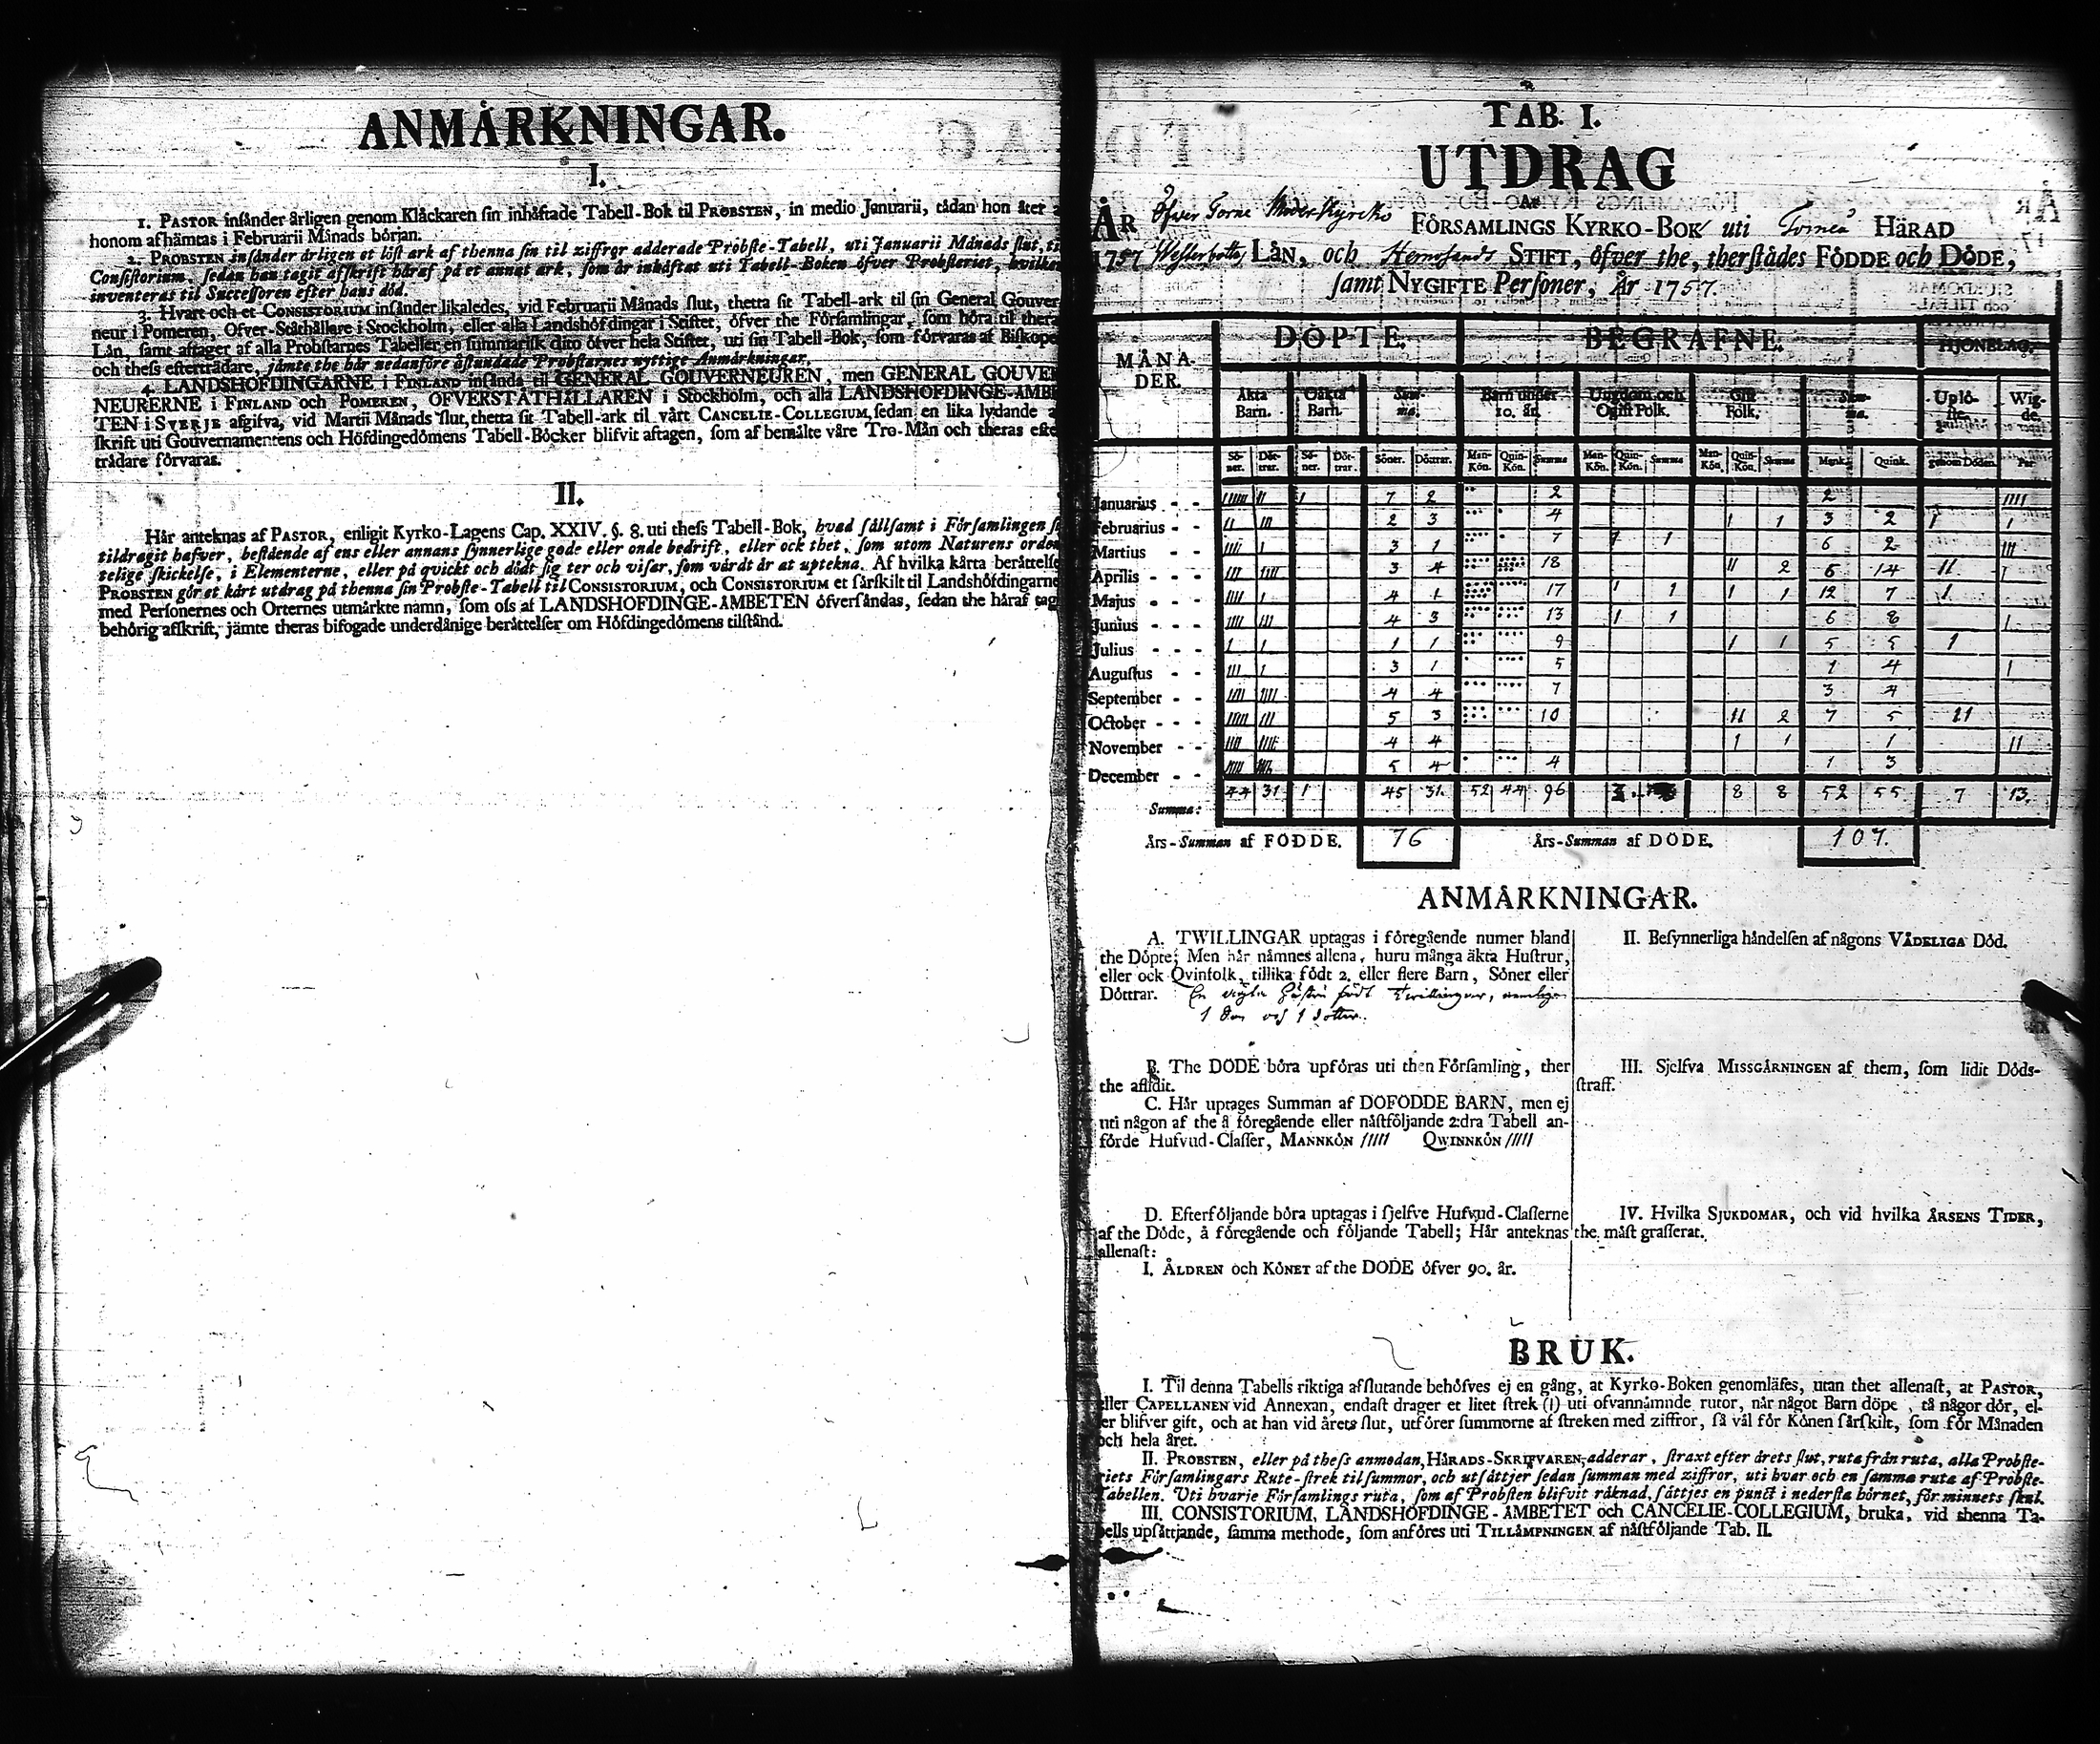 ANMÄRKNINGAR.
I.
1. PASTOR insänder årligen genom Klåckaren sin inhäftade Tabell-Bok til PROBSTEN, in medio Januarii, tådan hon åter a
honom afhämtas i Februarii Månads början.
2. PROBSTEN insänder årligen et löst ark af thenna sin til ziffror adderade Probste-Tabell, uti Januarii Månads slut, ti
Consistorium, sedan han tagit afskrift häraf på et annat ark, som är inhäftat uti Tabell-Boken öfver Probsteriet, hvilken
inventeras til Successoren efter hans död.
3. Hvart och et CONSISTORIUM insänder likaledes, vid Februarii Månads slut, thetta sit Tabell-ark til sin General Gouver
neur i Pomeren, Öfver-Ståthållare i Stockholm, eller alla Landshöfdingar i Stiftet, öfver the Församlingar, som höra til thera
Län, samt aftager af alla Probstarnes Tabeller en summarisk dito öfver hela Stiftet, uti sin Tabell-Bok, som förvaras af Biskope
och thess efterträdare, jämte the här nedanföre åstundade Probstarnes nyttige Anmärkningar.
4. LANDSHÖFDINGARNE i FINLAND insända til GENERAL GOUVERNEUREN, men GENERAL GOUVER
NEURERNE i FINLAND och POMEREN, ÖFVERSTÅTHÅLLAREN i Stockholm, och alla LANDSHÖFDINGE-ÄMBE
TEN i SVERJE afgifva, vid Martii Månads slut, thetta sit Tabell-ark til vårt CANCELIE-COLLEGIUM, sedan en lika lydande a
skrift uti Gouvernamentens och Höfdingedömens Tabell-Böcker blifvit aftagen, som af bemälte våre Tro-Män och theras efte
trädare förvaras.
II.
Här anteknas af PASTOR, enligit Kyrko-Lagens Cap. XXIV. §. 8. uti thess Tabell-Bok, hvad sällsamt i Församlingen s
tildragit hafver, bestående af ens eller annans synnerlige gode eller onde bedrift, eller ock thet, som utom Naturens orden
telige skickelse, i Elementerne, eller på quickt och dödt sig ter och visar, som värdt är at uptekna. Af hvilka kårta berättelse
PROBSTEN gör et kårt utdrag på thenna sin Probste-Tabell til CONSISTORIUM, och CONSISTORIUM et särskilt til Landshöfdingarne
med Personernes och Orternes utmärkte namn, som oss af LANDSHÖFDINGE-ÄMBETEN öfversändas, sedan the häraf tag
behörig afskrift, jämte theras bifogade underdånige berättelser om Höfdingedömens tilstånd.
TAB. I.
UTDRAG
ÅR Öfver Torne Moder Kyrcko FÖRSAMLINGS KYRKO-BOK uti Torneå HÄRAD
1757 Westerbottns LÄN, och Hernösands STIFT, öfver the, therstädes FÖDDE och DÖDE,
samt NYGIFTE Personer, År 1757.
MÅNA-DER. DÖPTE. BEGRAFNE. HJONELAG.
Äkta Barn. Oäkta Barn. Summa. Barn under 10. år. Ungdom och Ogift Folk. Gift Folk. Summa. Uplöste Wigde
Söner. Döttrar. Söner. Döttrar. Söner. Döttrar. Man-Kön. Quin-Kön. Summa Man-Kön. Quin-Kön. Summa Man-Kön. Quin-Kön. Summa Mank. Quink. genom Döden. Par
Januarius - - 7 2 2 2 IIII
Februarius - - 2 3 4 1 1 3 2 1 1
Martius - - 3 1 7 1 1 6 2 III
Aprilis - - 3 4 18 II 2 6 14 II 1
Majus - - 4 1 17 1 1 1 1 12 7 1
Junius - - 4 3 13 1 1 6 8 1
Julius - - 1 1 1 1 9 1 1 5 5 1
Augustus - - III 1 3 1 5 1 4 1
September - - 4 4 7 3 4
October - - 5 3 10 II 2 7 5 II
November - - 4 4 1 1 1 II
December - - 5 4 4 1 3
Summa: 44 31 1 45 31. 52 44 96 8 8 52 55 7 13.
Års-Summan af FÖDDE. 76 Års-Summan af DÖDE. 107.
ANMÄRKNINGAR.
A. TWILLINGAR uptagas i föregående numer bland
the Döpte; Men här nämnes allena, huru många äkta Hustrur,
eller ock Qvinfolk, tillika födt 2. eller flere Barn, Söner eller
Döttrar. En ägta Hustru födt Twillingar, nemligen
1 Son och 1 dotter.
B. The DÖDE böra upföras uti then Församling, ther
the aflidit.
C. Här uptages Summan af DÖFÖDDE BARN, men ej
uti någon af the å föregående eller nästföljande 2:dra Tabell an-
förde Hufvud-Classer, MANNKÖN IIIII QWINNKÖN IIIII
D. Efterföljande böra uptagas i sjelfve Hufvud-Classerne
af the Döde, å föregående och följande Tabell; Här anteknas
allenast:
I. ÅLDREN och KÖNET af the DÖDE öfver 90. år.
II. Besynnerliga händelsen af någons VÅDELIGA Död.
III. Sjelfva MISSGÄRNINGEN af them, som lidit Döds-
straff.
IV. Hvilka SJUKDOMAR, och vid hvilka ÅRSENS TIDER,
the mäst grasserat.
BRUK.
I. Til denna Tabells riktiga afslutande behöfves ej en gång, at Kyrko-Boken genomläses, utan thet allenast, at PASTOR,
eller CAPELLANEN vid Annexan, endast drager et litet strek (I) uti ofvannämnde rutor, når något Barn döpe, tå någor dör, el-
er blifver gift, och at han vid årets slut, utförer summorne af streken med ziffror, så väl för Könen särskilt, som för Månaden
och hela året.
II. PROBSTEN, eller på thess anmodan, HÄRADS-SKRIFVAREN, adderar, straxt efter årets slut, ruta från ruta, alla Probste-
riets Församlingars Rute-strek til summor, och utsättjer sedan summan med ziffror, uti hvar och en samma ruta af Probste-
Tabellen. Uti hvarje Församlings ruta, som af Probsten blifvit räknad, sättjes en punct i nedersta hörnet, för minnets skul.
III. CONSISTORIUM, LANDSHÖFDINGE-ÄMBETET och CANCELIE-COLLEGIUM, bruka, vid thenna Ta-
bells upsättjande, samma methode, som anföres uti TILLÄMPNINGEN af nästföljande Tab. II.